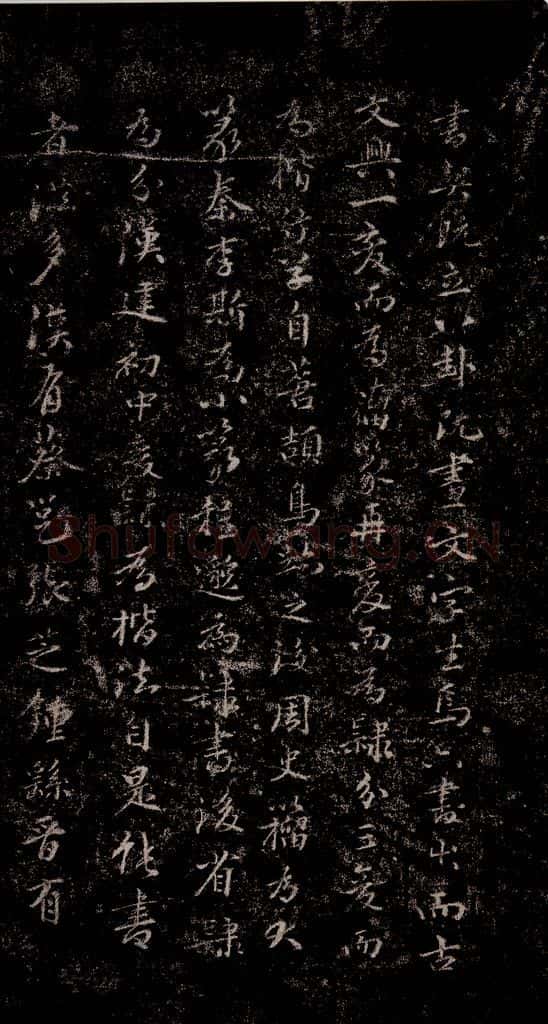 書契既立八卦既畫文字生焉六書出而古
文興一变而為籀篆再变而為隸分三变而
為楷行草自蒼頡鳥跡之後周史籀為大
篆秦李斯為小篆程邈為隸書後省隸
為分漢建初中变 為楷法自是能書
者漸多漢有蔡邕張芝鍾繇晋有
Shufawang.CN